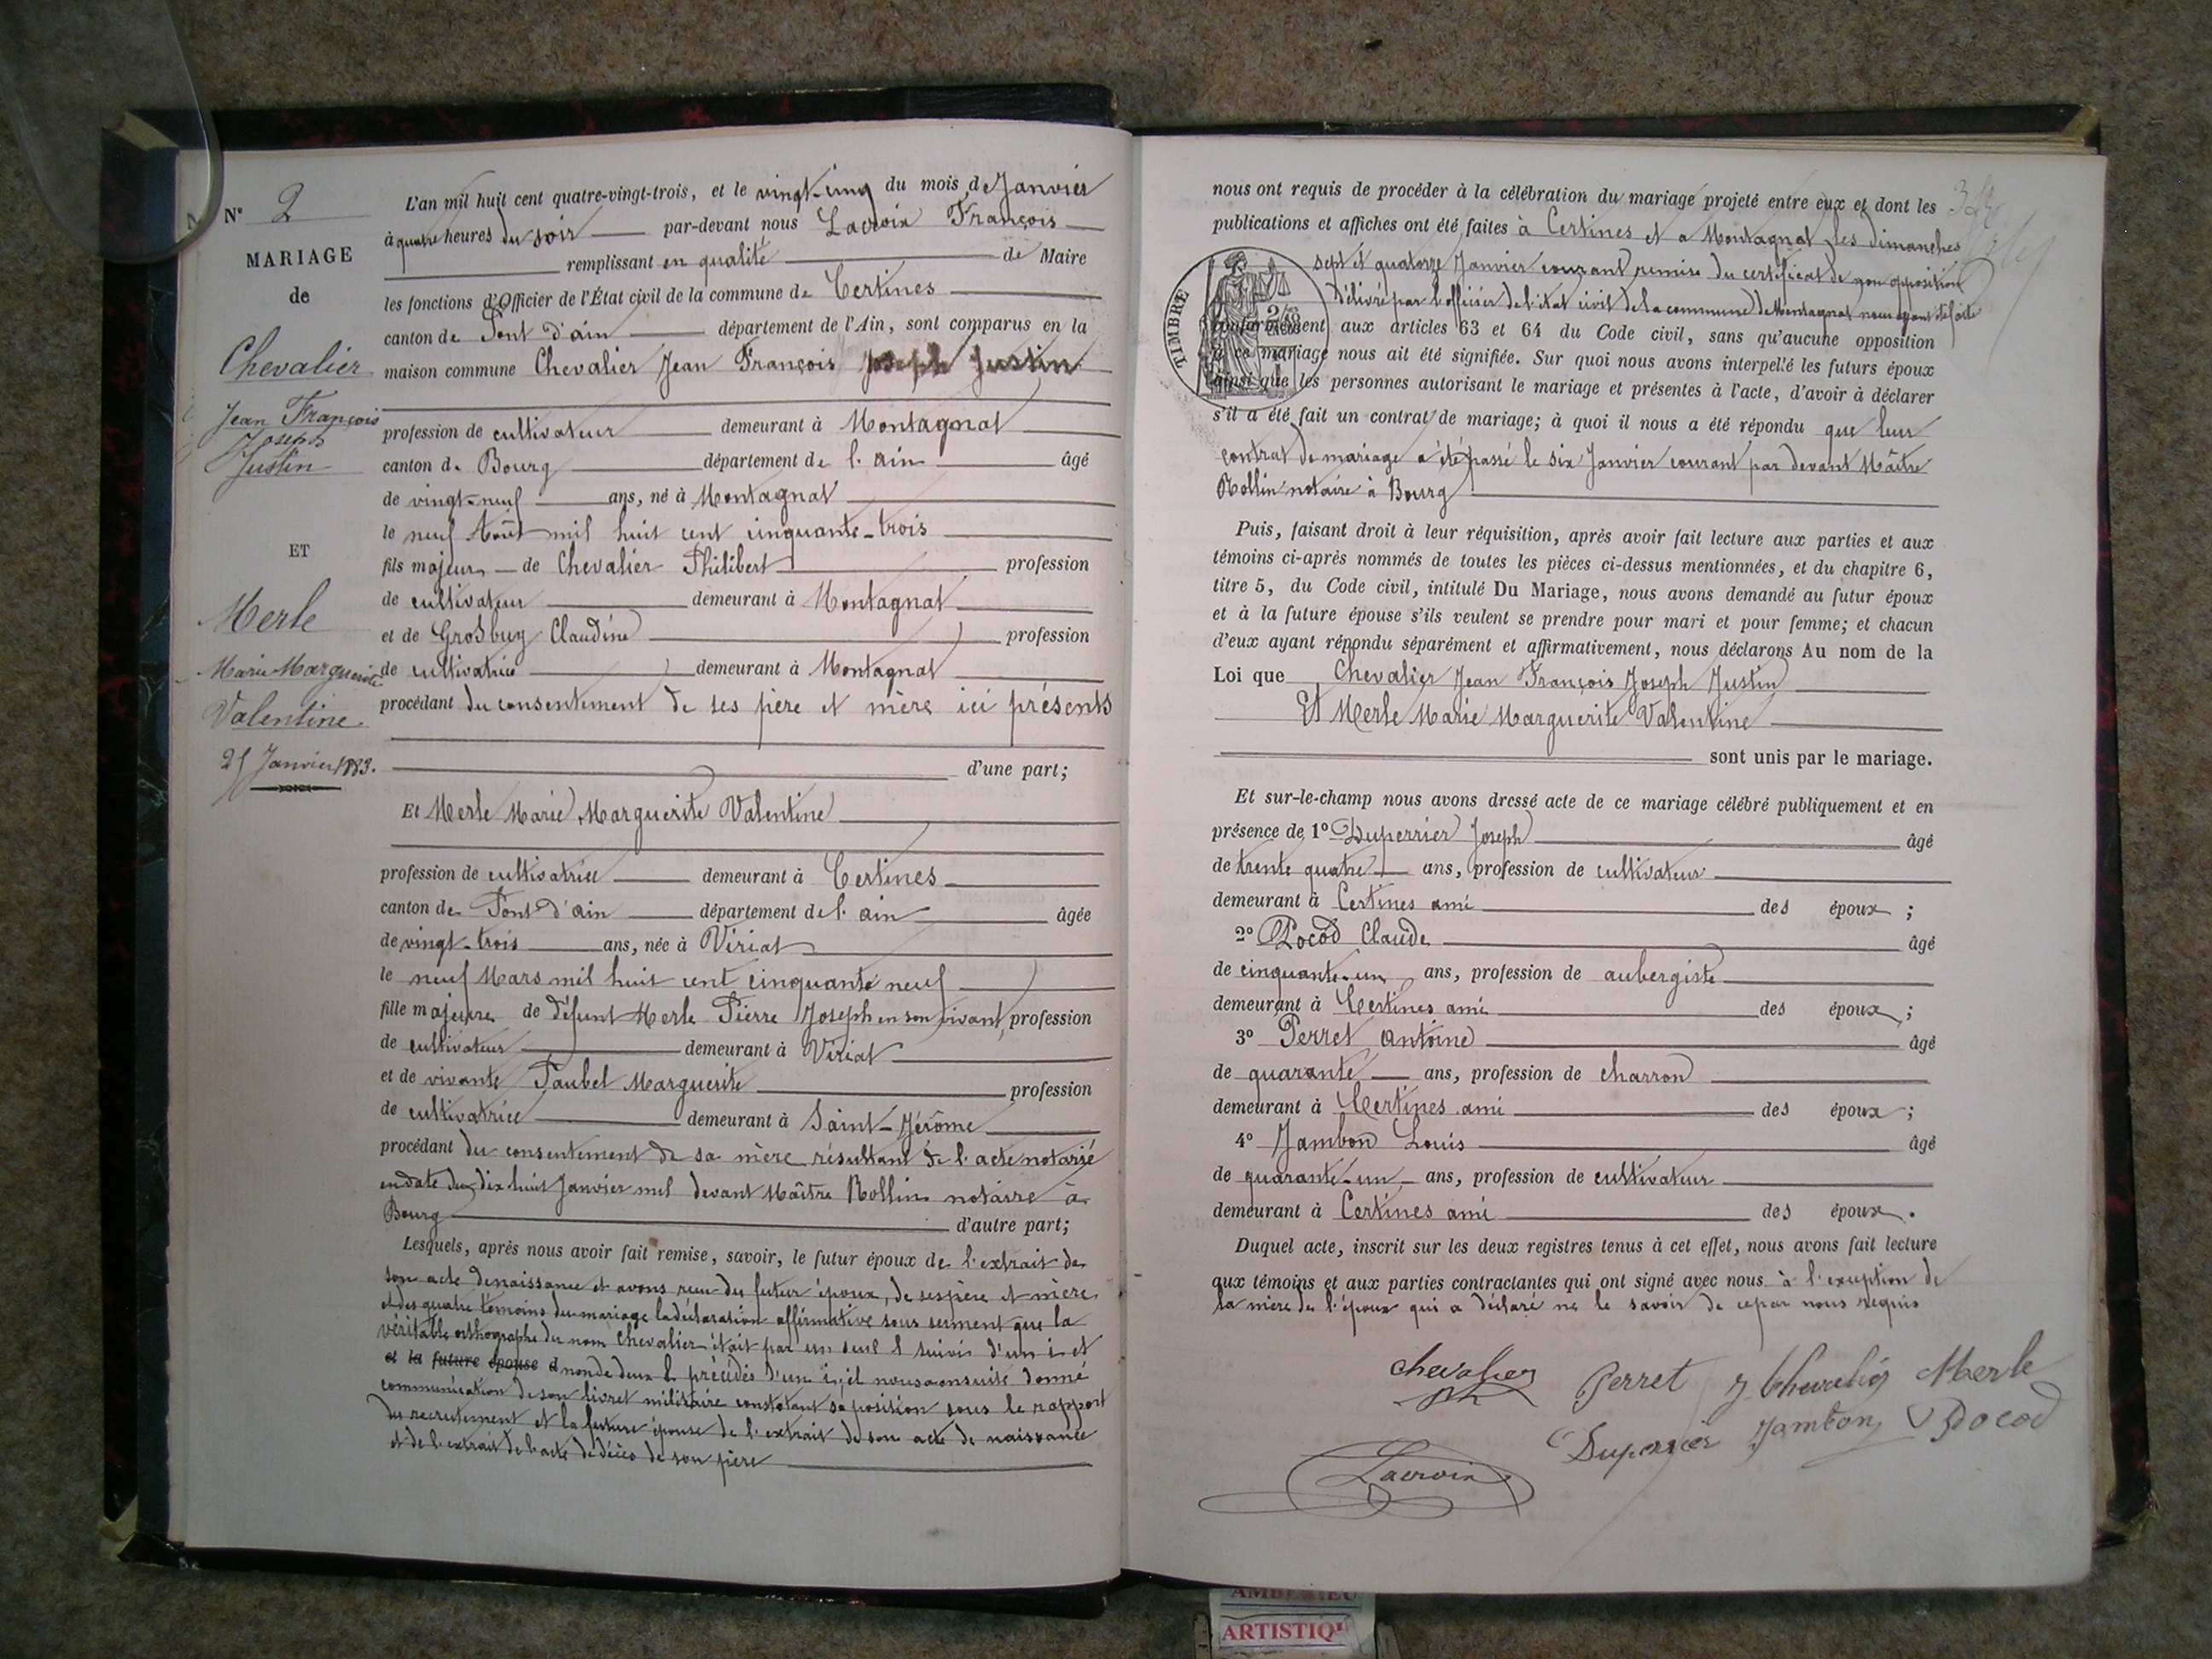 N° 2
MARIAGE
de
Chevalier
Jean François
Joseph
Justin
ET
Merle
Marie Marguerite
Valentine
25 Janvier 1883.
L'an mil huit cent quatre-vingt-trois, et le vingt-cinq du mois de Janvier
à quatre heures du soir par-devant nous Lacroix François
remplissant en qualité de Maire
les fonctions d'Officier de l'État civil de la commune de Certines
canton de Pont d'ain département de l'Ain, sont comparus en la
maison commune Chevalier Jean François Joseph Justin
profession de cultivateur demeurant à Montagnat
canton de Bourg département de l'ain âgé
de vingt-neuf ans, né à Montagnat
le neuf Août mil huit cent cinquante-trois
fils majeur de Chevalier Philibert profession
de cultivateur demeurant à Montagnat
et de Grosbuy Claudine profession
de cultivatrice demeurant à Montagnat
procédant du consentement de ses père et mère ici présents
d'une part;
Et Merle Marie Marguerite Valentine
profession de cultivatrice demeurant à Certines
canton de Pont d'ain département de l'ain âgée
de vingt-trois ans, née à Viriat
le neuf Mars mil huit cent cinquante neuf
fille majeure de défunt Merle Pierre Joseph en son vivant, profession
de cultivateur demeurant à Viriat
et de vivante Paubel Marguerite profession
de cultivatrice demeurant à Saint-Jérôme
procédant du consentement de sa mère résultant de l'acte notarié
en date du dix huit Janvier mil devant Maître Rollin notaire à
Bourg d'autre part;
Lesquels, après nous avoir fait remise, savoir, le futur époux de l'extrait de
son acte de naissance et avons reçu du futur époux, de ses père et mère
et des quatre témoins du mariage la déclaration affirmative sous serment que la
véritable orthographe du nom Chevalier était par un seul l suivis d'un i et
et la future épouse d non de deux l précédés d'un i, il nous a ensuite donné
communication de son livret militaire constatant sa position sous le rapport
du recrutement et la future épouse de l'extrait de son acte de naissance
et de l'extrait de l'acte de décès de son père
nous ont requis de procéder à la célébration du mariage projeté entre eux et dont les
publications et affiches ont été faites à Certines et a Montagnat les dimanches
sept et quatorze Janvier courant remise du certificat de non opposition
délivré par l'officier de l'état civil de la commune de Montagnat nous ayant été faite
TIMBRE
conformément aux articles 63 et 64 du Code civil, sans qu'aucune opposition
à ce mariage nous ait été signifiée. Sur quoi nous avons interpellé les futurs époux
ainsi que les personnes autorisant le mariage et présentes à l'acte, d'avoir à déclarer
s'il a été fait un contrat de mariage; à quoi il nous a été répondu que leur
contrat de mariage a été passé le six Janvier courant par devant Maître
Rollin notaire à Bourg
Puis, faisant droit à leur réquisition, après avoir fait lecture aux parties et aux
témoins ci-après nommés de toutes les pièces ci-dessus mentionnées, et du chapitre 6,
titre 5, du Code civil, intitulé Du Mariage, nous avons demandé au futur époux
et à la future épouse s'ils veulent se prendre pour mari et pour femme; et chacun
d'eux ayant répondu séparément et affirmativement, nous déclarons Au nom de la
Loi que Chevalier Jean François Joseph Justin
Et Merle Marie Marguerite Valentine
sont unis par le mariage.
Et sur-le-champ nous avons dressé acte de ce mariage célébré publiquement et en
présence de 1° Duperrier Joseph âgé
de trente quatre ans, profession de cultivateur
demeurant à Certines ami des époux;
2° Pocod Claude âgé
de cinquante-un ans, profession de aubergiste
demeurant à Certines ami des époux;
3° Perret Antoine âgé
de quarante ans, profession de charron
demeurant à Certines ami des époux;
4° Jambon Louis âgé
de quarante-un ans, profession de cultivateur
demeurant à Certines ami des époux.
Duquel acte, inscrit sur les deux registres tenus à cet effet, nous avons fait lecture
aux témoins et aux parties contractantes qui ont signé avec nous à l'exception de
la mère de l'époux qui a déclaré ne le savoir de ce par nous requis
Chevalier Perret J Chevalier Merle
Ph
Duperrier Jambon Pocod
Lacroix
ARTISTIQ